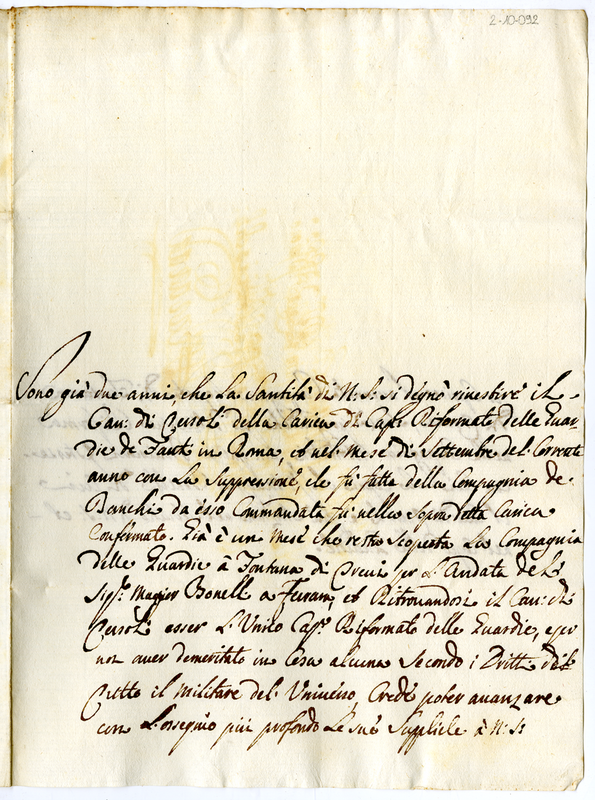 2-10-092
Sono già due anni, che La Santità di N: S: si degnò rivestire il
Cau: di Cersoli della Carica di Capº Riformato delle Guar-
die de Fanti in Roma, et nel mese di Settembre del Corrente
anno con La Suppressione, che fù fatta della Compagnia de
Banchi da esso Commandata fù nella Sopradetta Carica
Confermato. Già è un mese che resta Scoperta La Compagnia
delle Guardie à Fontana di Trevi per L'Andata del
Sigr: Magior Bonell a Ferrara, et Ritrouandosi il Cau: di
Cersoli esser L'Unico Capº Riformato delle Guardie, e per
non auer demeritato in Cosa alcuna Secondo i Dritti di
Tutto il Militare del Universo, Crede poter auanzare
con L'ossequio più profondo Le sue Suppliche à N: S: